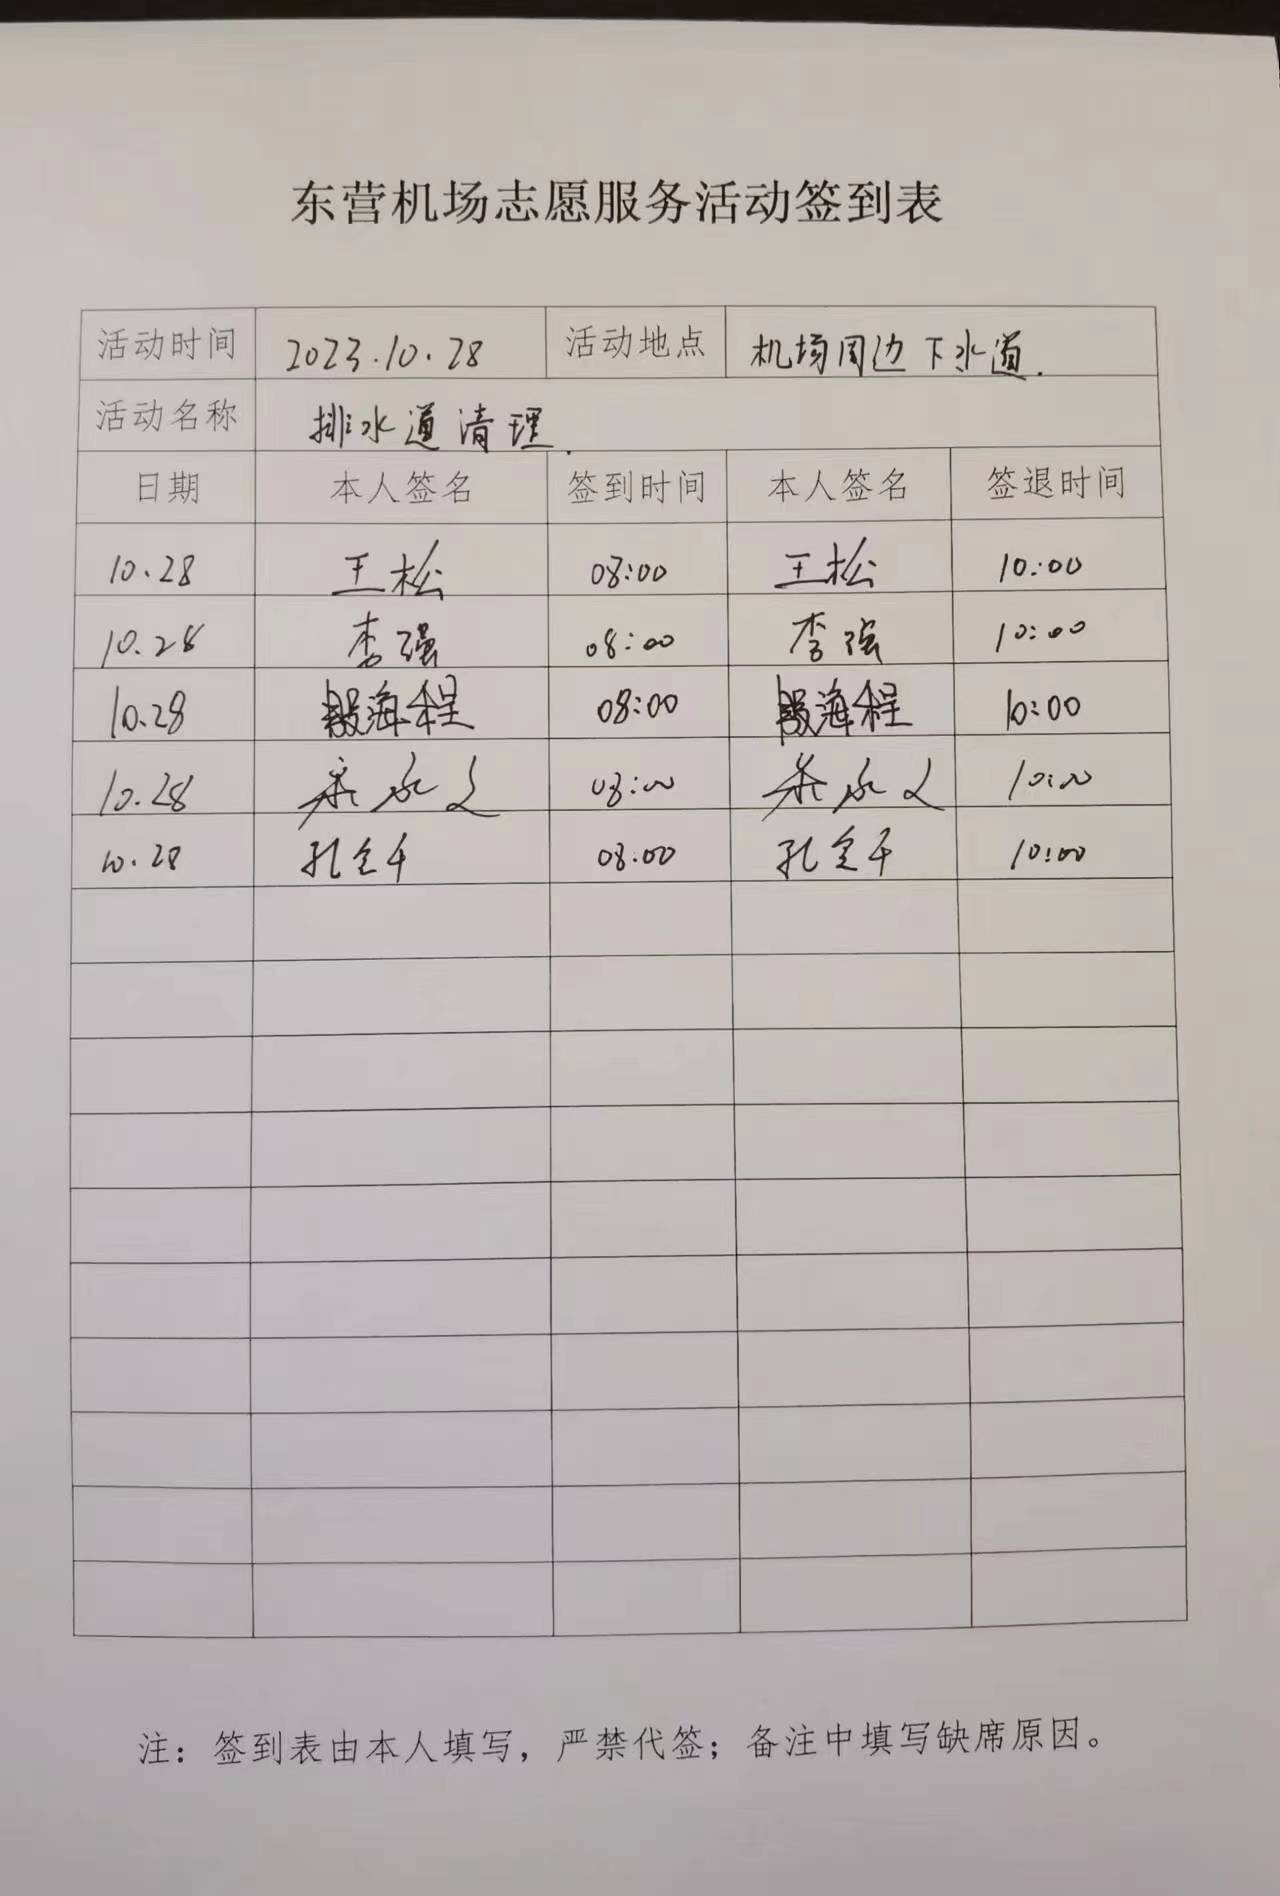 东营机场志愿服务活动签到表
活动时间 2023.10.28 活动地点 机场周边下水道.
活动名称 排水道清理.
日期 本人签名 签到时间 本人签名 签退时间
10.28 王松 08:00 王松 10:00
10.28 李强 08:00 李强 10:00
10.28 殷海程 08:00 殷海程 10:00
10.28 08:00 10:00
10.28 孔令千 08:00 孔令千 10:00
注：签到表由本人填写，严禁代签；备注中填写缺席原因。